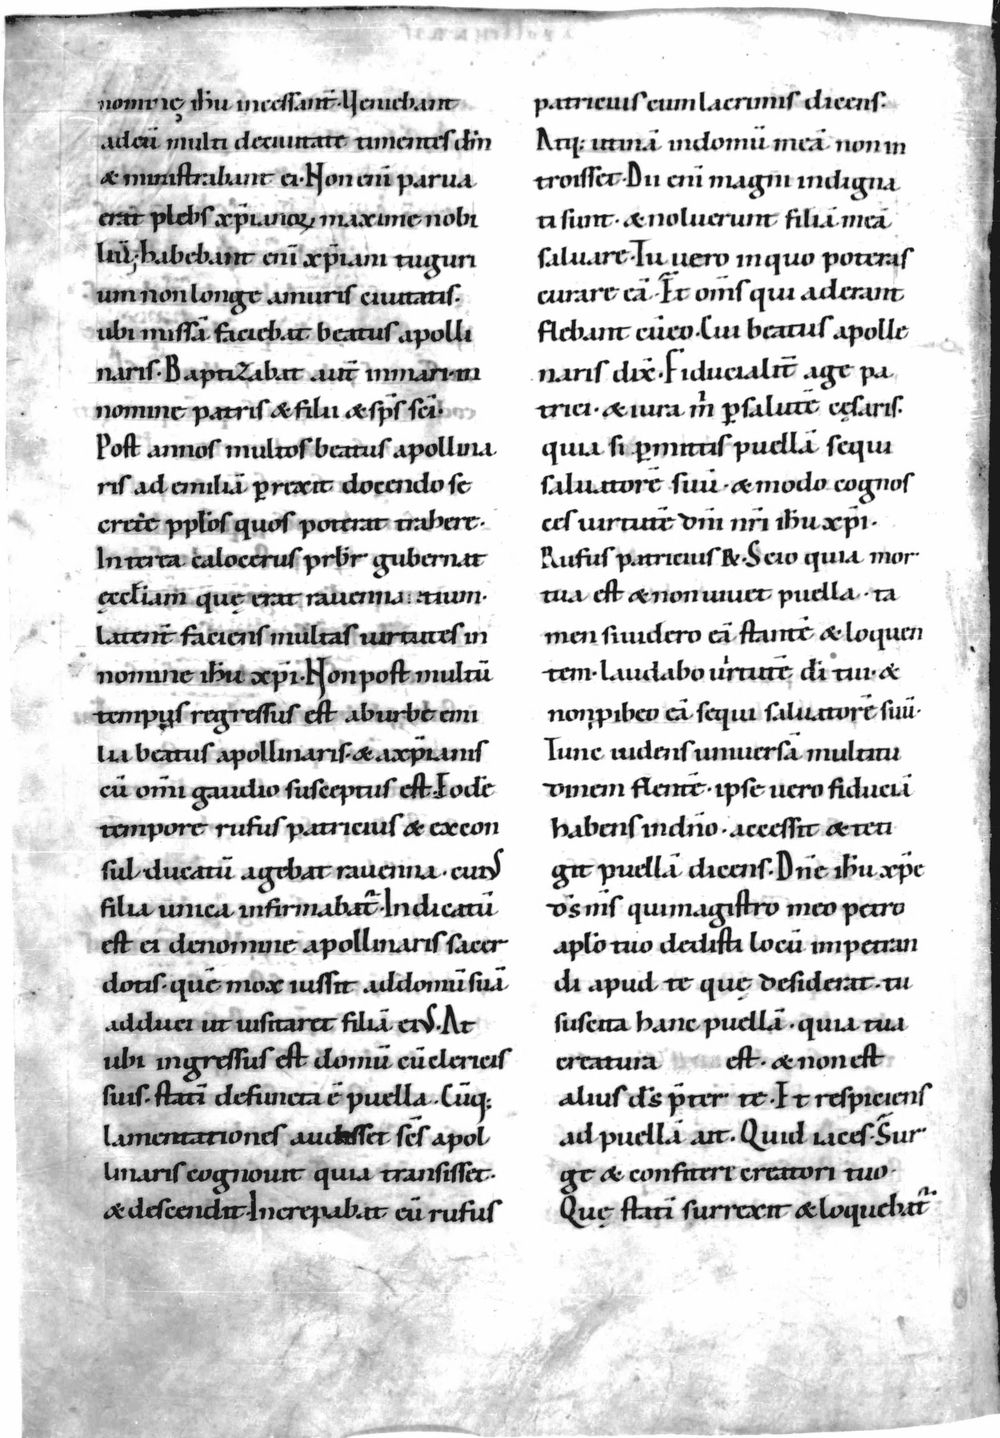 nomine ih̄u incessant̄. Ueniebant
ad eū multi de ciuitate timentes dn̄m
& ministrabant ei. Non eni̅ parua
erat plebs xp̄ianoꝝ maxime nobi
liū; habebant eni̅ xp̄iani tuguri
um non longe a muris ciuitatis.
ubi missā faciebat beatus apolli
naris. Baptizabat aut̄ in mari. in
nomine patris & filii & sp̄s sc̄i.
Post annos multos beatus apollina
ris ad emiliā ꝑrexit docendo se
crete pp̄los quos poterat trahere.
In terea calocerus prb̄r gubernat
ęcc̄liam quę erat rauennatium.
Latent̄ faciens multas uirtutes in
nomine ih̄u xp̄i. Non post multū
tempus regressus est ab urbe emi
lia beatus apollinaris. & a xp̄ianis
cū om̄i gaudio susceptus est. Eodē
tempore rufus patricius & ex con
sul ducatū agebat rauenna. cuius
filia unica infirmabat̄. Indicatū
est ei de nomine apollinaris sacer
dotis. quē mox iussit ad domū suā
adduci ut uisitaret filiā eius. At
ubi ingressus est domū cū clericis
suis. statī defuncta ē puella. Cūq;
lamentationes audisset sc̄s apol
linaris cognouit quia transisset.
& descendit. Increpabat eū rufus
patricius cum lacrimis dicens.
Atq; utinā in domū meā non in
troisset. Dii eni̅ magni indigna
ti sunt. & noluerunt filiā meā
saluare. Tu uero in quo poteras
curare eā. Et om̄s qui aderant
flebant cū eo. Cui beatus apolle
naris dix̄. Fiducialit̄ age pa
trici. & iura m̄ ꝑ salutē cęsaris.
quia si ꝑmittis puellā sequi
saluatorē suū. & modo cognos
ces uirtutē dn̄i nr̄i ih̄u xp̄i.
Rufus patricius R̄. Scio quia mor
tua est & non uiuet puella. ta
men si uidero eā stantē & loquen
tem. laudabo uirtutē dī tui. &
non ꝓibeo eā sequi saluatorē suū.
Tunc uidens uniuersā multitu
dinem flentē. ipse uero fiduciā
habens in dn̄o. accessit & teti
git puellā dicens. Dn̄e ih̄u xp̄e
ds̄ ms̄ qui magistro meo petro
aplō tuo dedisti locū impetran
di apud te quę desiderat. tu
suscita hanc puellā. quia tua
creatura est. & non est
alius ds̄ p̄ter te. Et respiciens
ad puellā ait. Quid iaces. Sur
ge & confitere creatori tuo.
Quę statī surrexit & loquebat̄